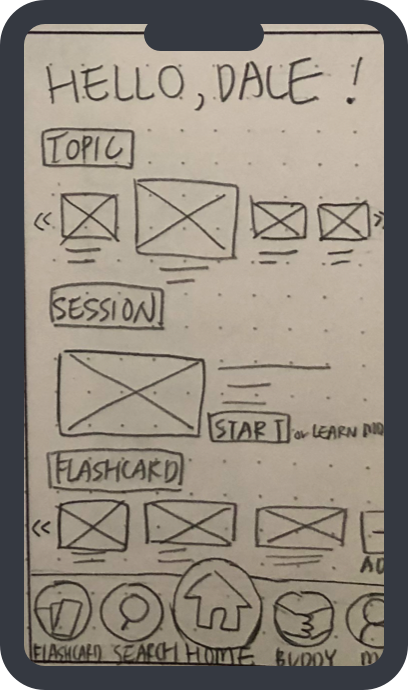 HELLO, DALE !
TOPIC
«
SESSION
START or LEARN
FLASHCARD
«
FLASHCARD SEARCH HOME BUDDY